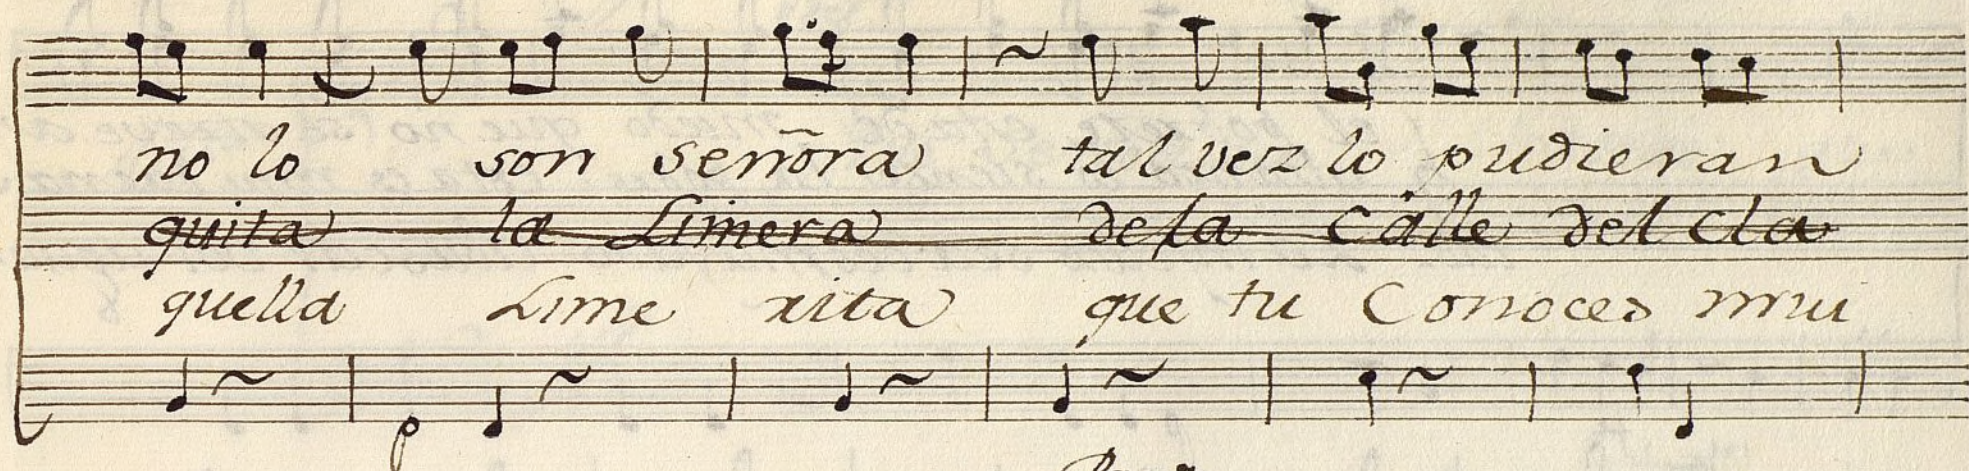 no lo son señora tal vez lo pudieran
quita la Limera de la Calle del cla
quella Lime rita que tu Conoces mui